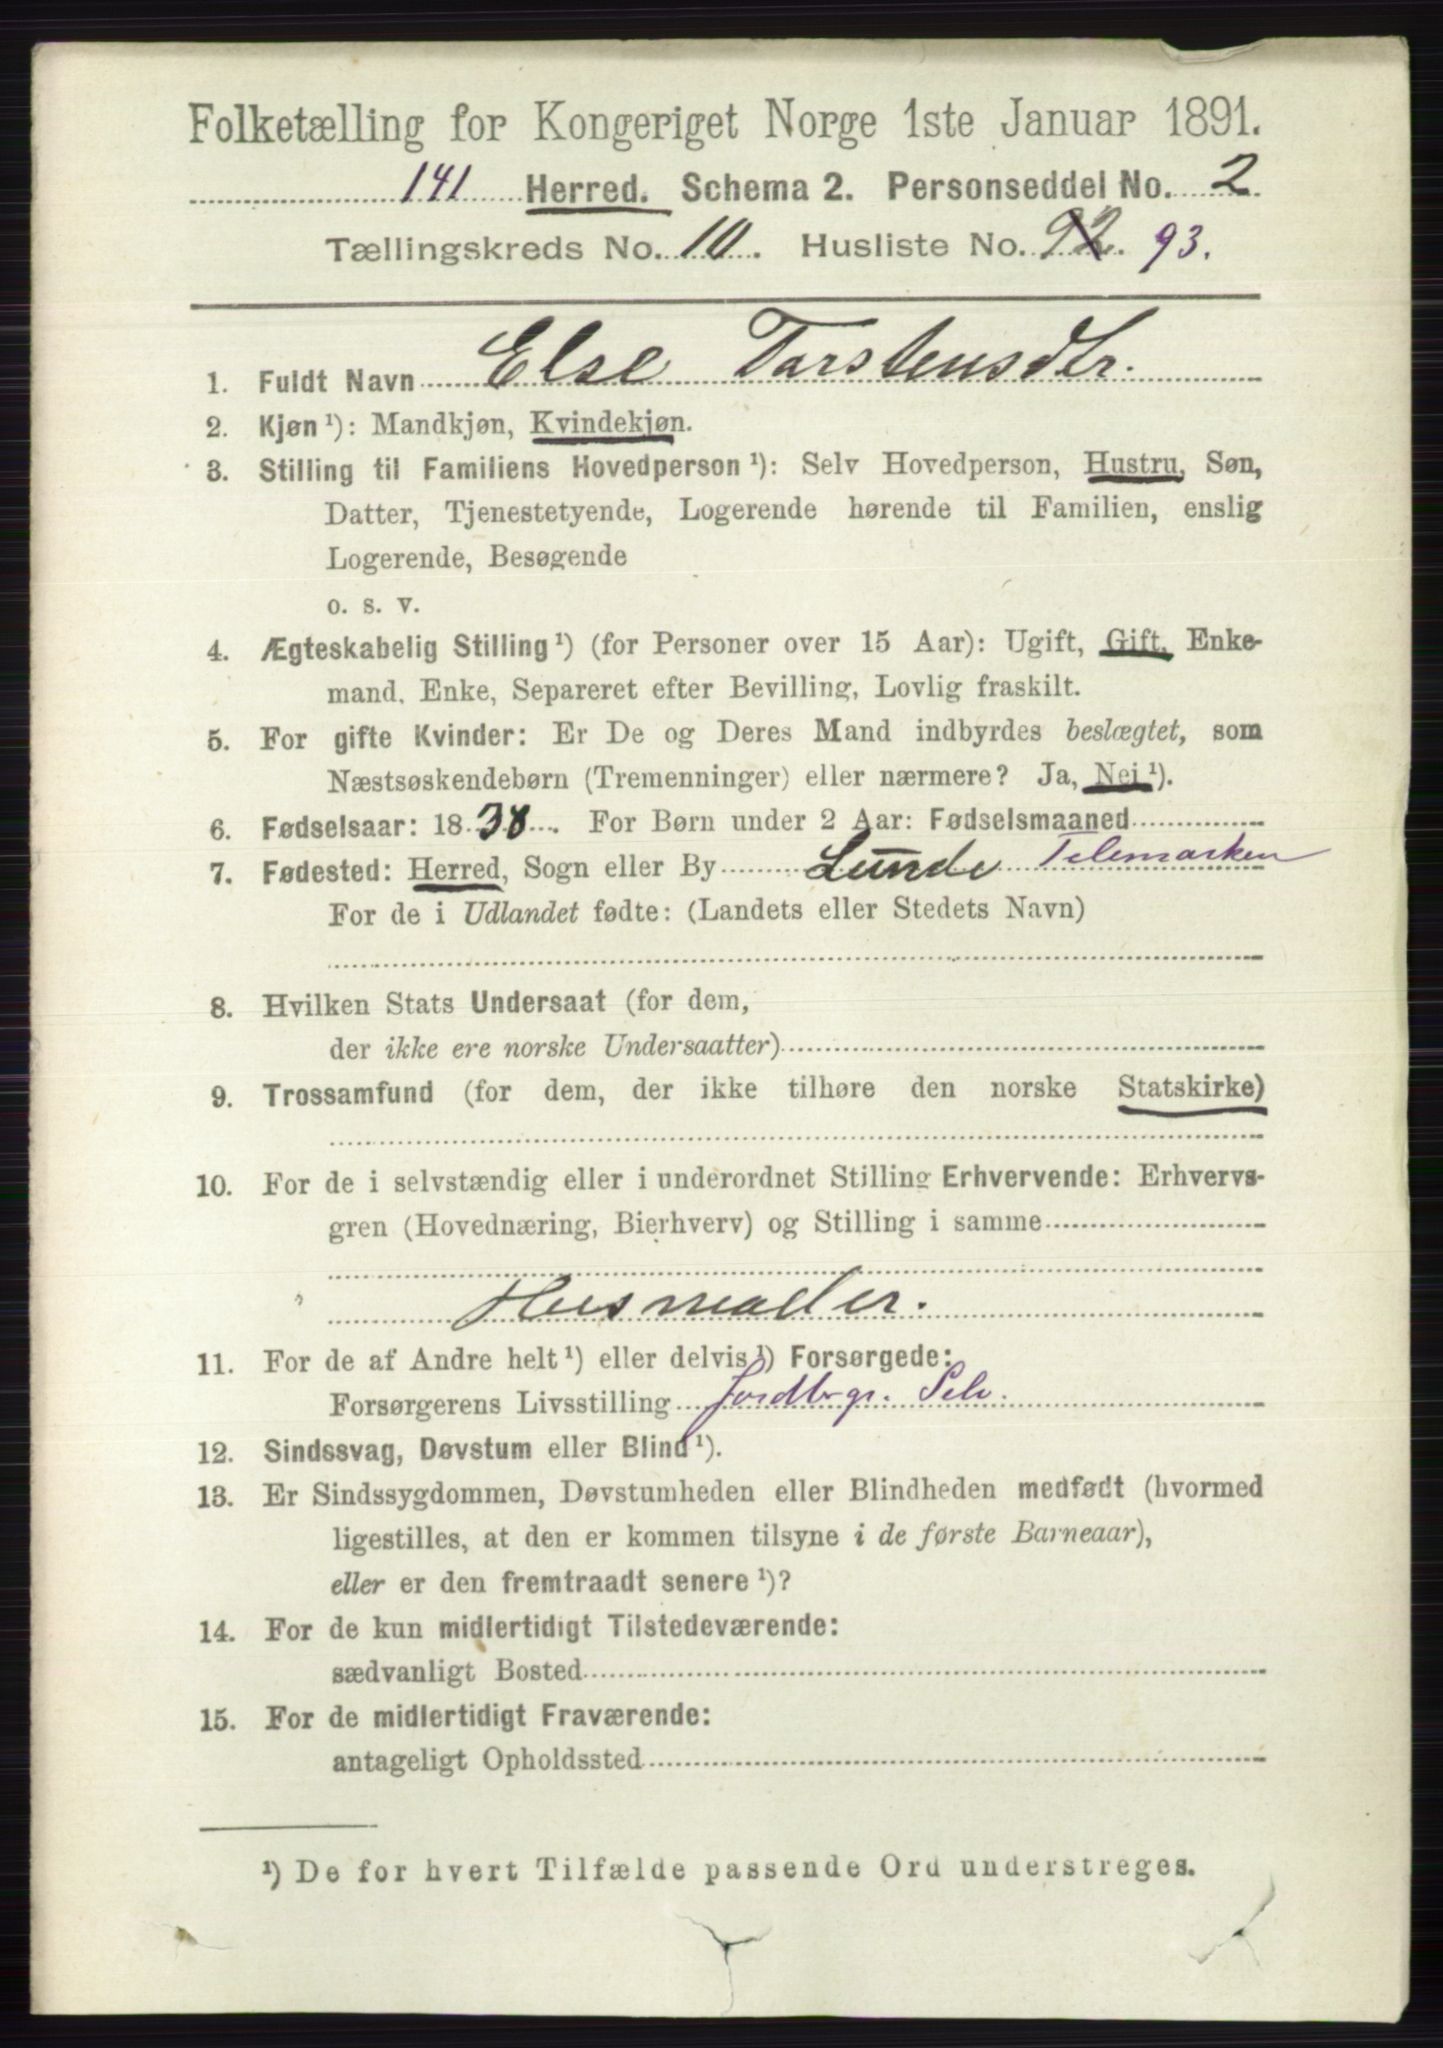 Folketælling for Kongeriget Norge 1ste Januar 1891.
141 Herred. Schema 2. Personseddel No. 2.
Tællingskreds No. 10. Husliste No. 92. 93.
1. Fuldt Navn Else Tarstensdtr.
2. Kjøn ¹): Mandkjøn, Kvindekjøn.
3. Stilling til Familiens Hovedperson ¹): Selv Hovedperson, Hustru, Søn,
Datter, Tjenestetyende, Logerende hørende til Familien, enslig
Logerende, Besøgende
o. s. v.
4. Ægteskabelig Stilling ¹) (for Personer over 15 Aar): Ugift, Gift, Enke-
mand, Enke, Separeret efter Bevilling, Lovlig fraskilt.
5. For gifte Kvinder: Er De og Deres Mand indbyrdes beslægtet, som
Næstsøskendebørn (Tremenninger) eller nærmere? Ja, Nei ¹).
6. Fødselsaar: 1838. For Børn under 2 Aar: Fødselsmaaned
7. Fødested: Herred, Sogn eller By Lunde Telemarken
For de i Udlandet fødte: (Landets eller Stedets Navn)
8. Hvilken Stats Undersaat (for dem,
der ikke ere norske Undersaatter)
9. Trossamfund (for dem, der ikke tilhøre den norske Statskirke)
10. For de i selvstændig eller i underordnet Stilling Erhvervende: Erhvervs-
gren (Hovednæring, Bierhverv) og Stilling i samme
Husmoder.
11. For de af Andre helt ¹) eller delvis ¹) Forsørgede:
Forsørgerens Livsstilling Jordbgr. Selv.
12. Sindssvag, Døvstum eller Blind ¹).
13. Er Sindssygdommen, Døvstumheden eller Blindheden medfødt (hvormed
ligestilles, at den er kommen tilsyne i de første Barneaar),
eller er den fremtraadt senere ¹)?
14. For de kun midlertidigt Tilstedeværende:
sædvanligt Bosted
15. For de midlertidigt Fraværende:
antageligt Opholdssted
¹) De for hvert Tilfælde passende Ord understreges.